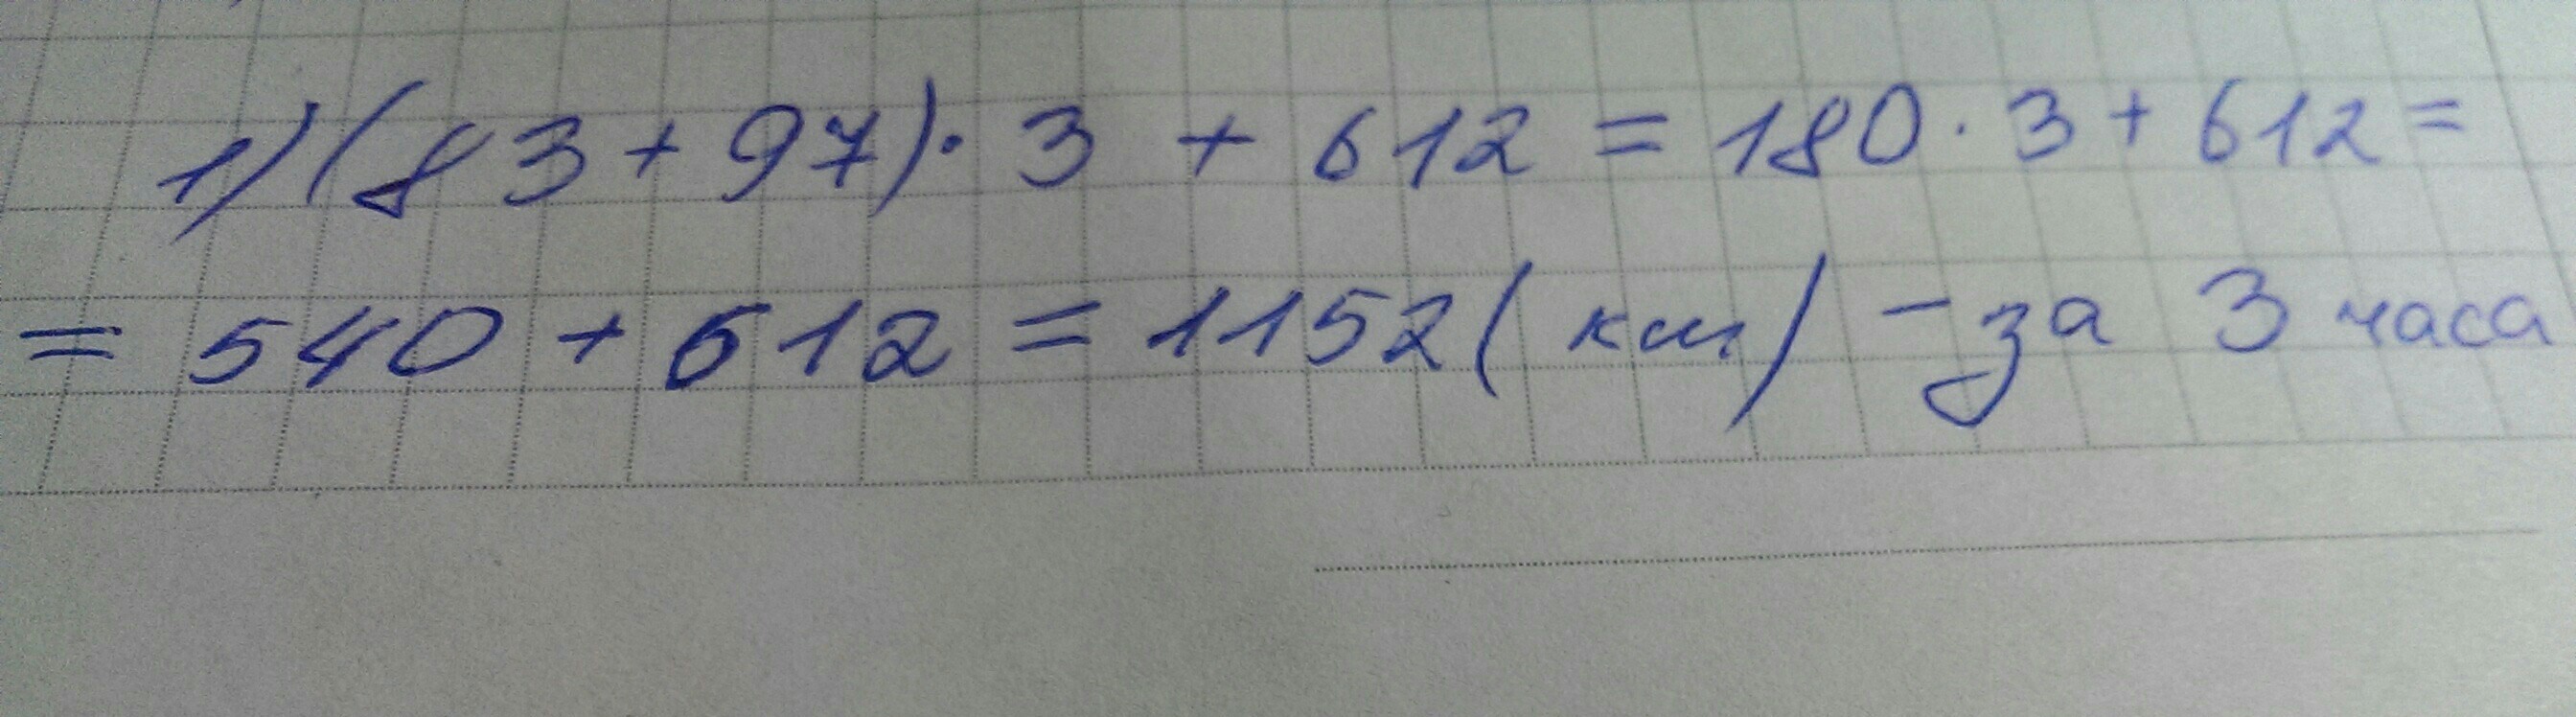 1) (83 + 97) · 3 + 612 = 180 · 3 + 612 =
= 540 + 612 = 1152 (км) - за 3 часа